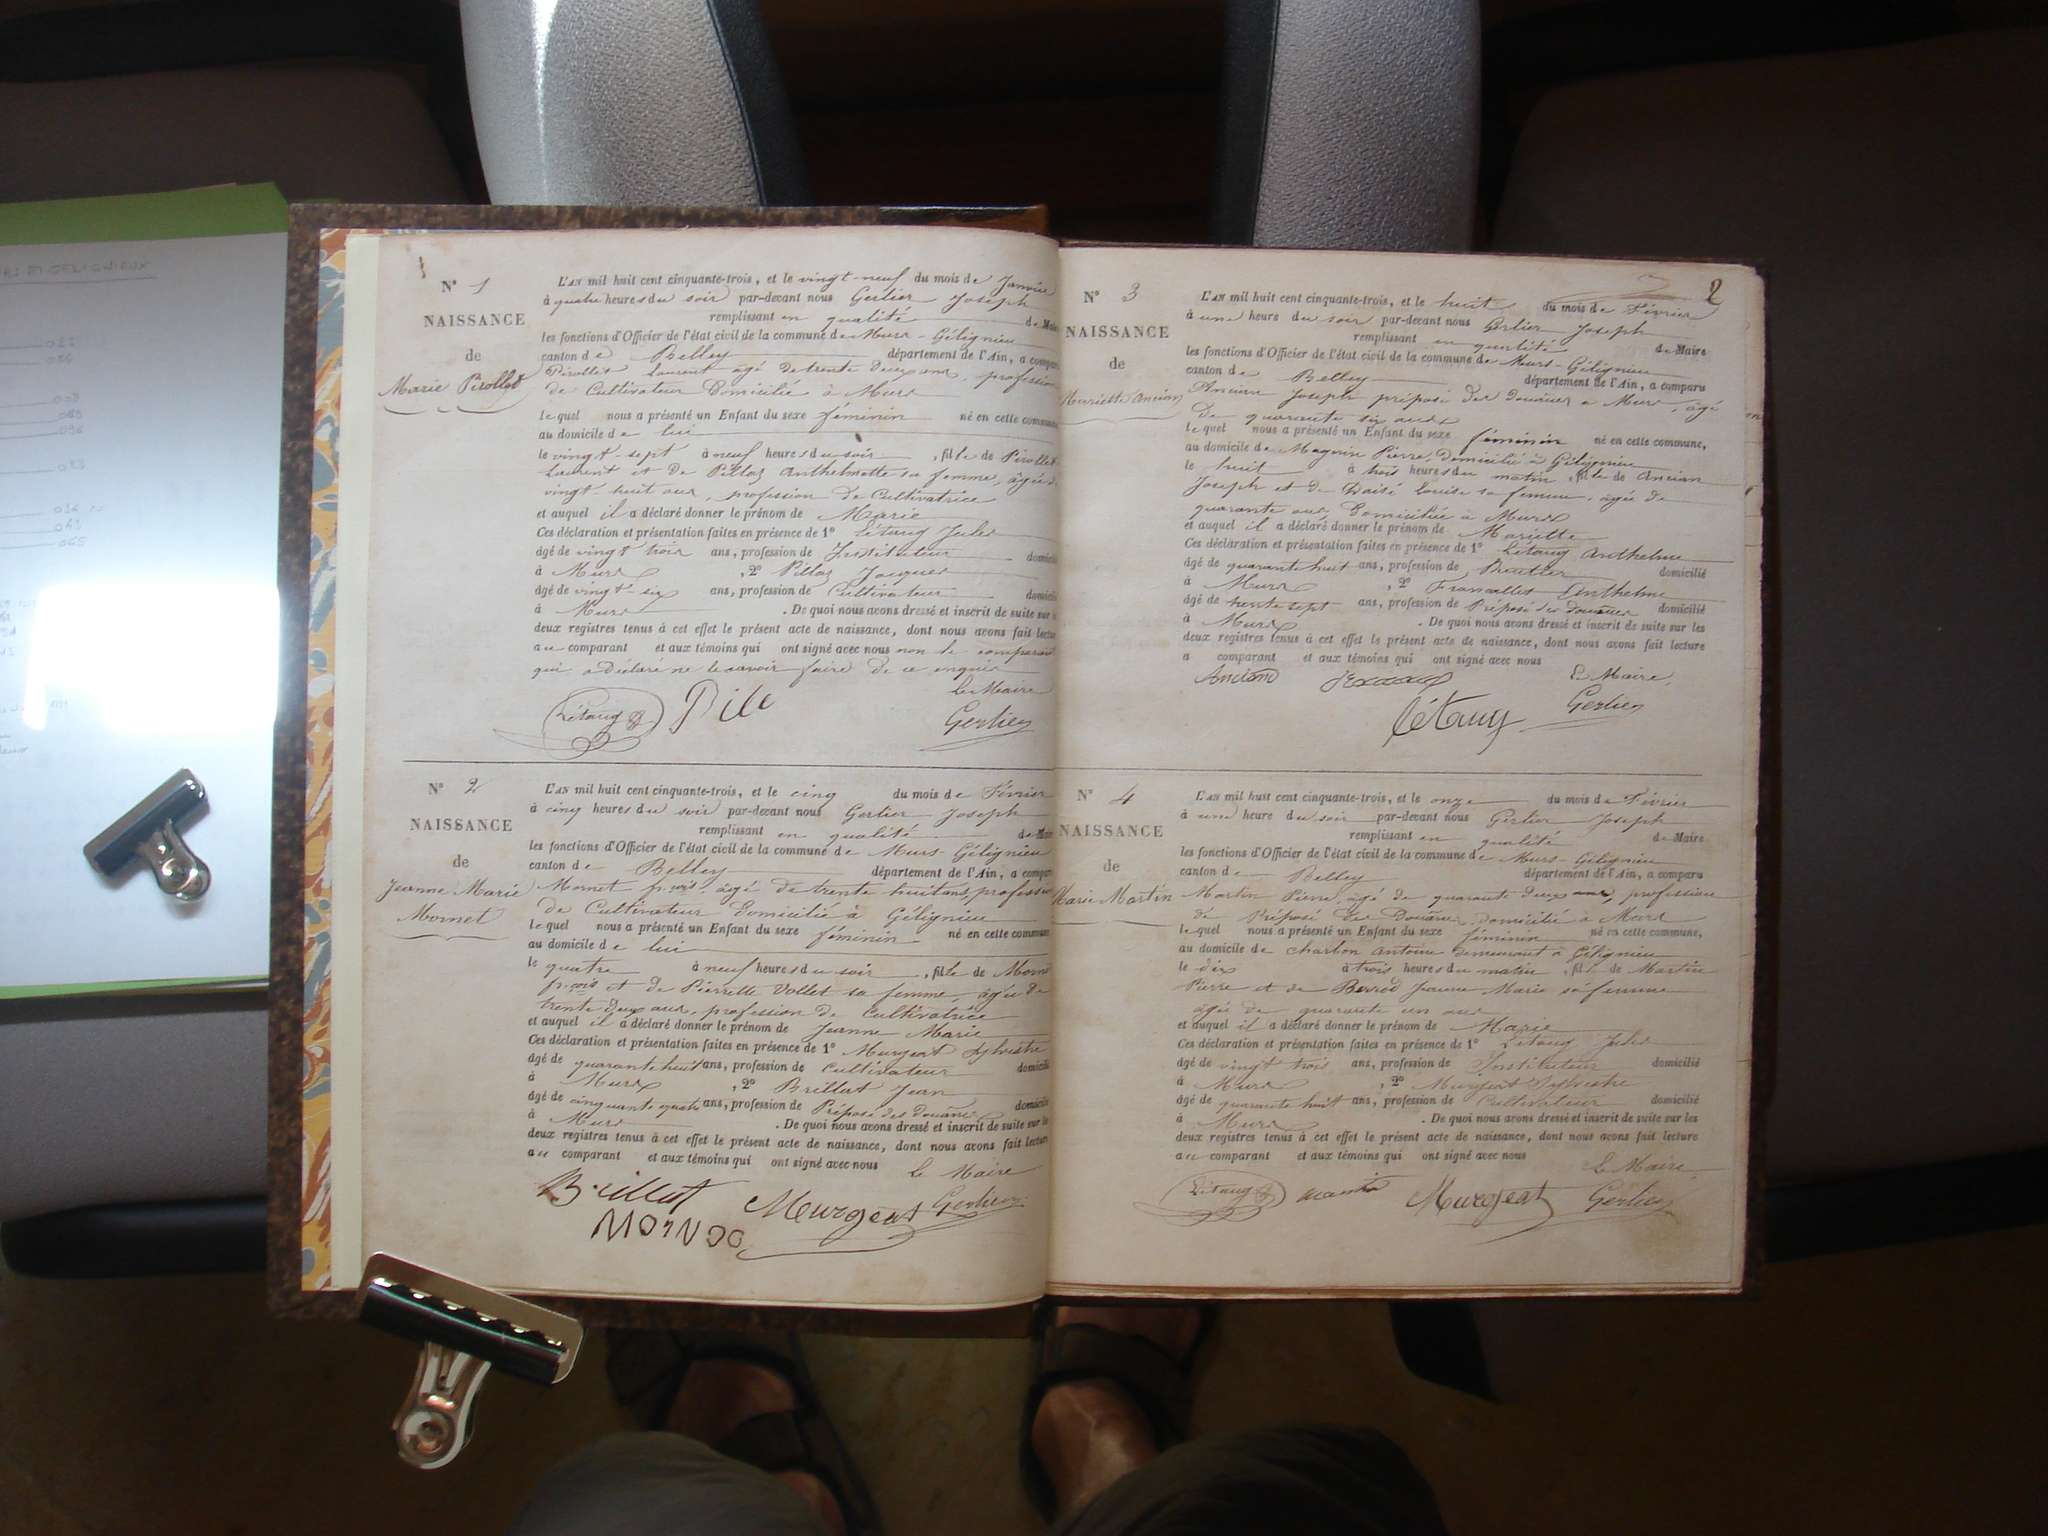 N° 1
NAISSANCE
de
Marie Pirollet
L'AN mil huit cent cinquante-trois, et le vingt-neuf du mois de Janvier
à quatre heures du soir par-devant nous Gerlier Joseph
remplissant en qualité de Maire
les fonctions d'Officier de l'état civil de la commune de Murs-Gélignieu
canton de Belley département de l'Ain, a comparu
Pirollet Laurent âgé de trente deux ans, profession
de Cultivateur Domicilié à Murs
lequel nous a présenté un Enfant du sexe féminin né en cette commune
au domicile de lui
le vingt-sept à neuf heures du soir, fille de Pirollet
Laurent et de Pillaz Anthelmette sa femme, âgée de
vingt-huit ans, profession de Cultivatrice
et auquel il a déclaré donner le prénom de Marie
Ces déclaration et présentation faites en présence de 1° Létang Jules
âgé de vingt trois ans, profession de Instituteur domicilié
à Murs, 2° Pillaz Jacques
âgé de vingt-six ans, profession de Cultivateur domicilié
à Murs. De quoi nous avons dressé et inscrit de suite sur les
deux registres tenus à cet effet le présent acte de naissance, dont nous avons fait lecture
au comparant et aux témoins qui ont signé avec nous non le comparant
qui a Déclaré ne le savoir faire de ce enquis
Le Maire
Létang Gerlier
N° 2
NAISSANCE
de
Jeanne Marie
Mornet
L'AN mil huit cent cinquante-trois, et le cinq du mois de Février
à cinq heures du soir par-devant nous Gerlier Joseph
remplissant en qualité de Maire
les fonctions d'Officier de l'état civil de la commune de Murs-Gélignieu
canton de Belley département de l'Ain, a comparu
Mornet fçois âgé de trente huit ans, profession
de Cultivateur Domicilié à Gélignieu
lequel nous a présenté un Enfant du sexe féminin né en cette commune,
au domicile de lui
le quatre à neuf heures du soir, fille de Mornet
fçois et de Pierrette Vollet sa femme, âgée de
trente deux ans, profession de Cultivatrice
et auquel il a déclaré donner le prénom de Jeanne Marie
Ces déclaration et présentation faites en présence de 1° Murgeat Sylvestre
âgé de quarante huit ans, profession de Cultivateur domicilié
à Murs, 2° Brillat Jean
âgé de cinquante quatre ans, profession de Préposé des Douanes domicilié
à Murs. De quoi nous avons dressé et inscrit de suite sur les
deux registres tenus à cet effet le présent acte de naissance, dont nous avons fait lecture
au comparant et aux témoins qui ont signé avec nous Le Maire
Brillat Murgeat Gerlier
2
N° 3
NAISSANCE
de
Mariette Ancian
L'AN mil huit cent cinquante-trois, et le huit du mois de Février
à une heure du soir par-devant nous Gerlier Joseph
remplissant en qualité de Maire
les fonctions d'Officier de l'état civil de la commune de Murs-Gélignieu
canton de Belley département de l'Ain, a comparu
Ancian Joseph préposé des Douanes à Murs, âgé
De quarante six ans
lequel nous a présenté un Enfant du sexe féminin né en cette commune,
au domicile de Pierre, domicilié à Gélignieu
le huit à trois heures du matin, fille de Ancian
Joseph et de Louise sa femme, âgée de
quarante ans, Domiciliée à Murs
et auquel il a déclaré donner le prénom de Mariette
Ces déclaration et présentation faites en présence de 1° Létang Anthelme
âgé de quarante huit ans, profession de Rentier domicilié
à Murs, 2° Anthelme
âgé de trente sept ans, profession de Préposé des douanes domicilié
à Murs. De quoi nous avons dressé et inscrit de suite sur les
deux registres tenus à cet effet le présent acte de naissance, dont nous avons fait lecture
a comparant et aux témoins qui ont signé avec nous
Le Maire,
Létang Gerlier
N° 4
NAISSANCE
de
Marie Martin
L'AN mil huit cent cinquante-trois, et le onze du mois de Février
à une heure du soir par-devant nous Gerlier Joseph
remplissant en qualité de Maire
les fonctions d'Officier de l'état civil de la commune de Murs-Gélignieu
canton de Belley département de l'Ain, a comparu
Martin Pierre, âgé de quarante deux ans, profession
de Préposé des Douanes, domicilié à Murs
lequel nous a présenté un Enfant du sexe féminin né en cette commune,
au domicile de charbon Antoine demeurant à Gélignieu
le dix à trois heures du matin, fille de Martin
Pierre et de Berrod Jeanne Marie sa femme
âgée de quarante un ans
et auquel il a déclaré donner le prénom de Marie
Ces déclaration et présentation faites en présence de 1° Létang Jules
âgé de vingt trois ans, profession de Instituteur domicilié
à Murs, 2° Murgeat Sylvestre
âgé de quarante huit ans, profession de Cultivateur domicilié
à Murs. De quoi nous avons dressé et inscrit de suite sur les
deux registres tenus à cet effet le présent acte de naissance, dont nous avons fait lecture
au comparant et aux témoins qui ont signé avec nous
Le Maire,
Létang Murgeat Gerlier